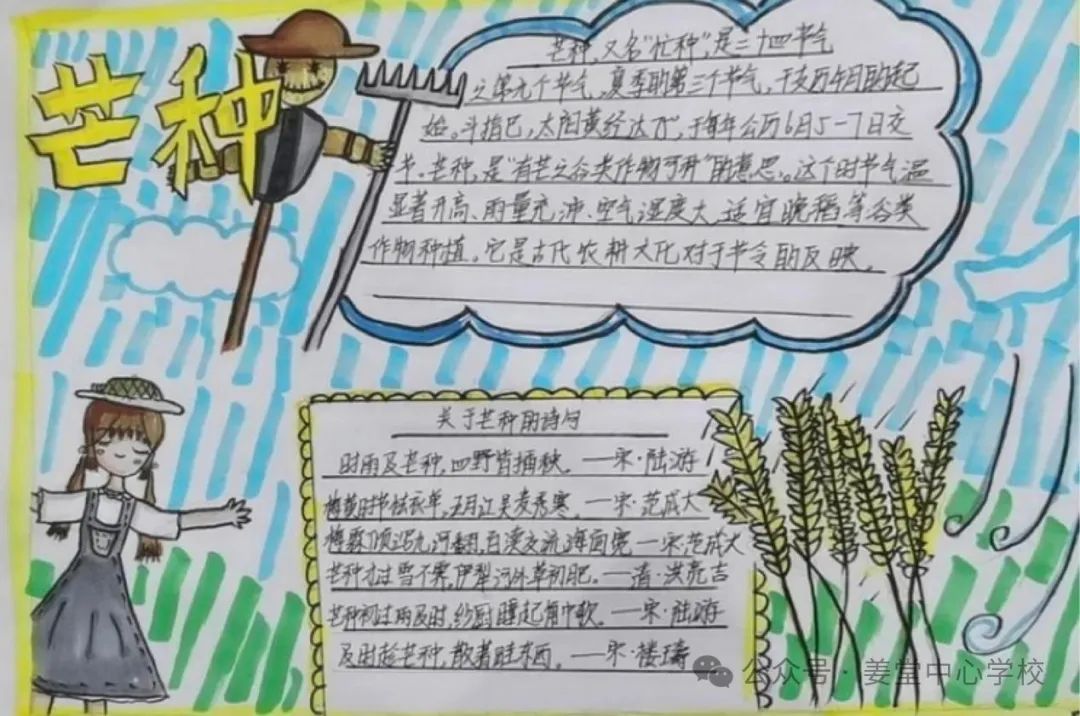 芒种
芒种,又名"忙种",是二十四节气
之第九个节气,夏季的第三个节气,干支历午月的起
始。斗指巳,太阳黄经达75°,于每年公历6月5-7日交
节。芒种,是"有芒之谷类作物可种"的意思。这个时节气温
显著升高、雨量充沛、空气湿度大,适宜晚稻等谷类
作物种植。它是古代农耕文化对于节令的反映。
关于芒种的诗句
时雨及芒种,四野皆插秧。——宋·陆游
梅黄时节怯衣单,五月江吴麦秀寒。——宋·范成大
梅霖倾泻九河翻,百渎交流海面宽——宋范成大
芒种才过雪不霁,伊犁河外草初肥。——清·洪亮吉
芒种初过雨及时,纱厨睡起角巾欹。——宋·陆游
及时趁芒种,散著畦东西。——宋·楼璹
公众号·姜堂中心学校